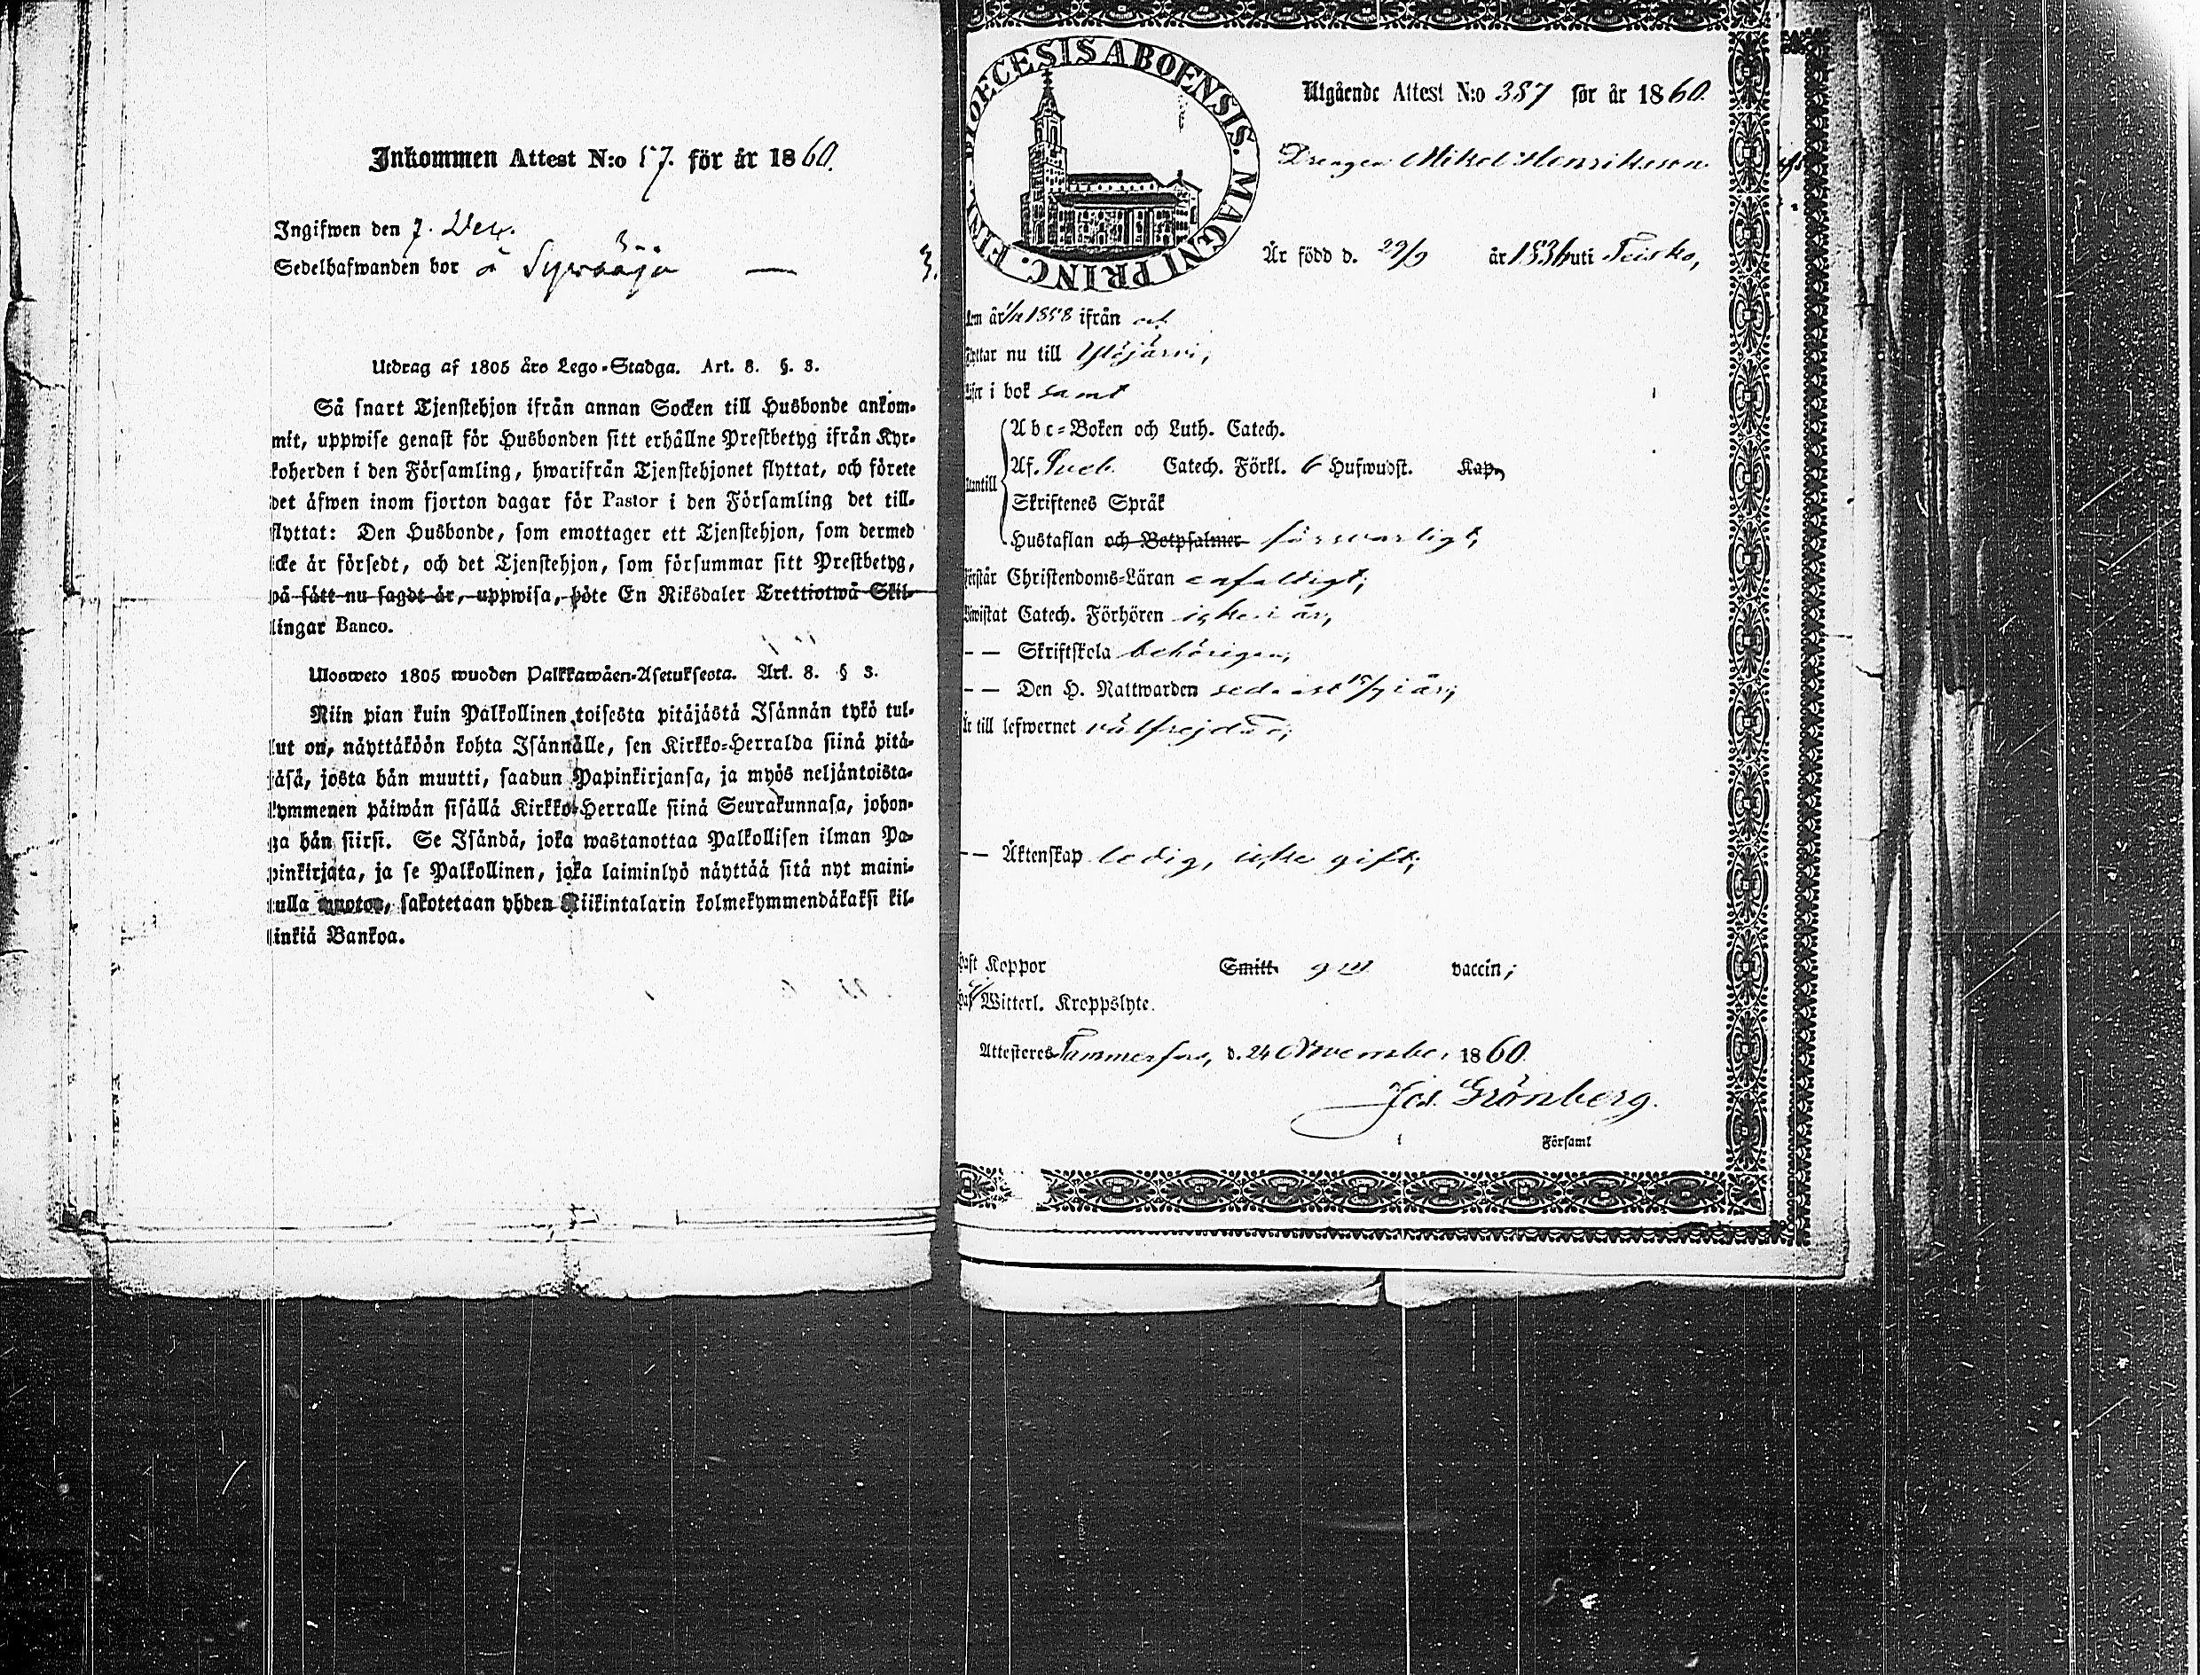 Inkommen Attest N:o 57. för år 1860.
Ingifwen den 7. Dec.
Sedelhafwanden bor å
Utdrag af 1805 års Lego-Stadga. Art. 8. §. 3.
Så snart Tjenstehjon ifrån annan Socken till Husbonde ankom-
mit, uppwise genast för Husbonden sitt erhållne Prestbetyg ifrån Kyr-
koherden i den Församling, hwarifrån Tjenstehjonet flyttat, och förete
det äfwen inom fjorton dagar för Pastor i den Församling det till-
flyttat: Den Husbonde, som emottager ett Tjenstehjon, som dermed
icke är försedt, och det Tjenstehjon, som försummar sitt Prestbetyg,
på sätt nu sagdt är, uppwisa, böte En Riksdaler Trettiotwå Skil-
lingar Banco.
Ulosweto 1805 wuoden Palkkawäen-Asetuksesta. Art. 8. § 3.
Niin pian kuin Palkollinen toisesta pitäjästä Isännän tykö tul-
lut on, näyttäköön kohta Isännälle, sen Kirkko-Herralda siinä pitä-
jäsä, josta hän muutti, saadun Papinkirjansa, ja myös neljäntoista-
kymmenen päiwän sisällä Kirkko-Herralle siinä Seurakunnasa, johon-
ga hän siirsi. Se Isändä, joka wastanottaa Palkollisen ilman Pa-
pinkirjata, ja se Palkollinen, joka laiminlyö näyttää sitä nyt maini-
tulla muoton, sakotetaan yhden Riikintalarin kolmekymmendäkaksi kil-
linkiä Bankoa.
DIOECESIS ABOENSIS. MAGNI PRINC. FINL.
Utgående Attest N:o 387 för år 1860.
Drengen Mikel Henriksson
Är född d. 29/9 år 1836 uti Teisko,
år 1858 ifrån
Flyttar nu till Ylöjärvi,
Läser i bok samt
Abc-Boken och Luth. Catech.
Af. Sveb. Catech. Förkl. 6 Hufwudst. Kap.
utantill
Skriftenes Språk
Hustaflan och Botpsalmer försvarligt,
Förstår Christendoms-Läran enfaldigt;
Bewistat Catech. Förhören icke i år,
– – Skriftskola behörigen;
– – Den H. Nattwarden sednast 15/7 i år;
Är till lefwernet välfrejdad;
– – Äktenskap ledig, icke gift;
Haft Koppor Smitt. god vaccin;
Haft Witterl. Kroppslyte.
Attesteres Tammerfors, d. 24 November 1860.
Jos. Grönberg.
Församl